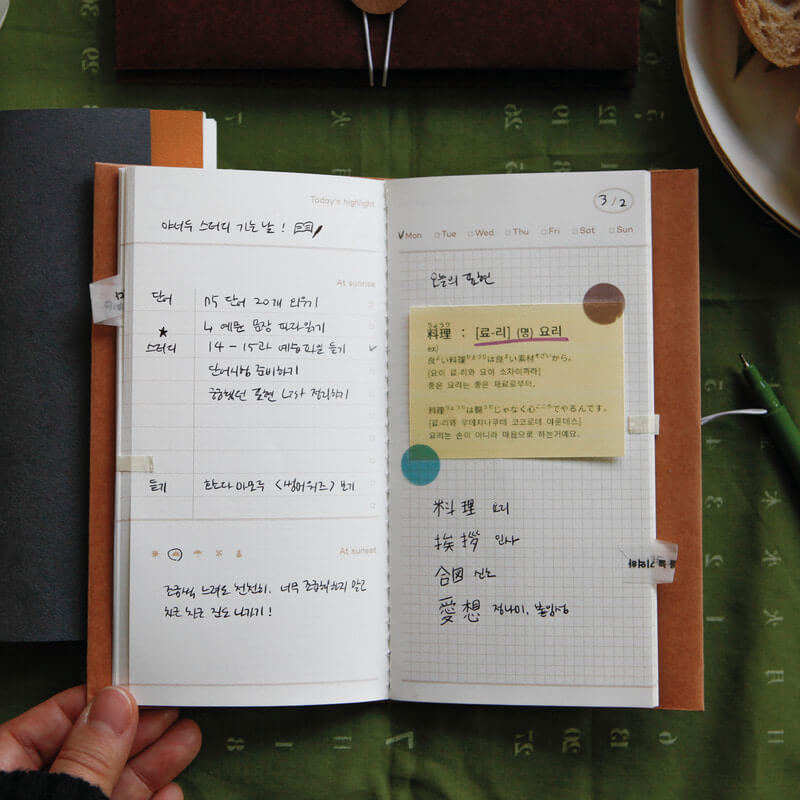 Today's highlight
야너두 스터디 가는 날!
At sunrise
단어 N5 단어 20개 외우기
★ 4 예문 문장 따라읽기
스터디 14-15과 예습파일 듣기
단어시험 준비하기
공부했던 표현 정리하기
듣기 한노다 아모쿠 보기
At sunset
조금씩 느려도 천천히. 너무 조급해하지 말고
차근 차근 진도 나가기!
3/2
Mon Tue Wed Thu Fri Sat Sun
오늘의 표현
りょうり
料理 : [료-리] (명) 요리
ex)
良い料理りょうりは良い素材そざいから。
[요이 료-리와 요이 소자이까라]
좋은 요리는 좋은 재료로부터.
料理りょうりは腕うでじゃなく心こころでやるんです。
[료-리와 우데쟈나쿠떼 코코로데 야룬데스]
요리는 손이 아니라 마음으로 하는거예요.
料理 요리
挨拶 인사
合図 신호
愛想 정나미, 붙임성